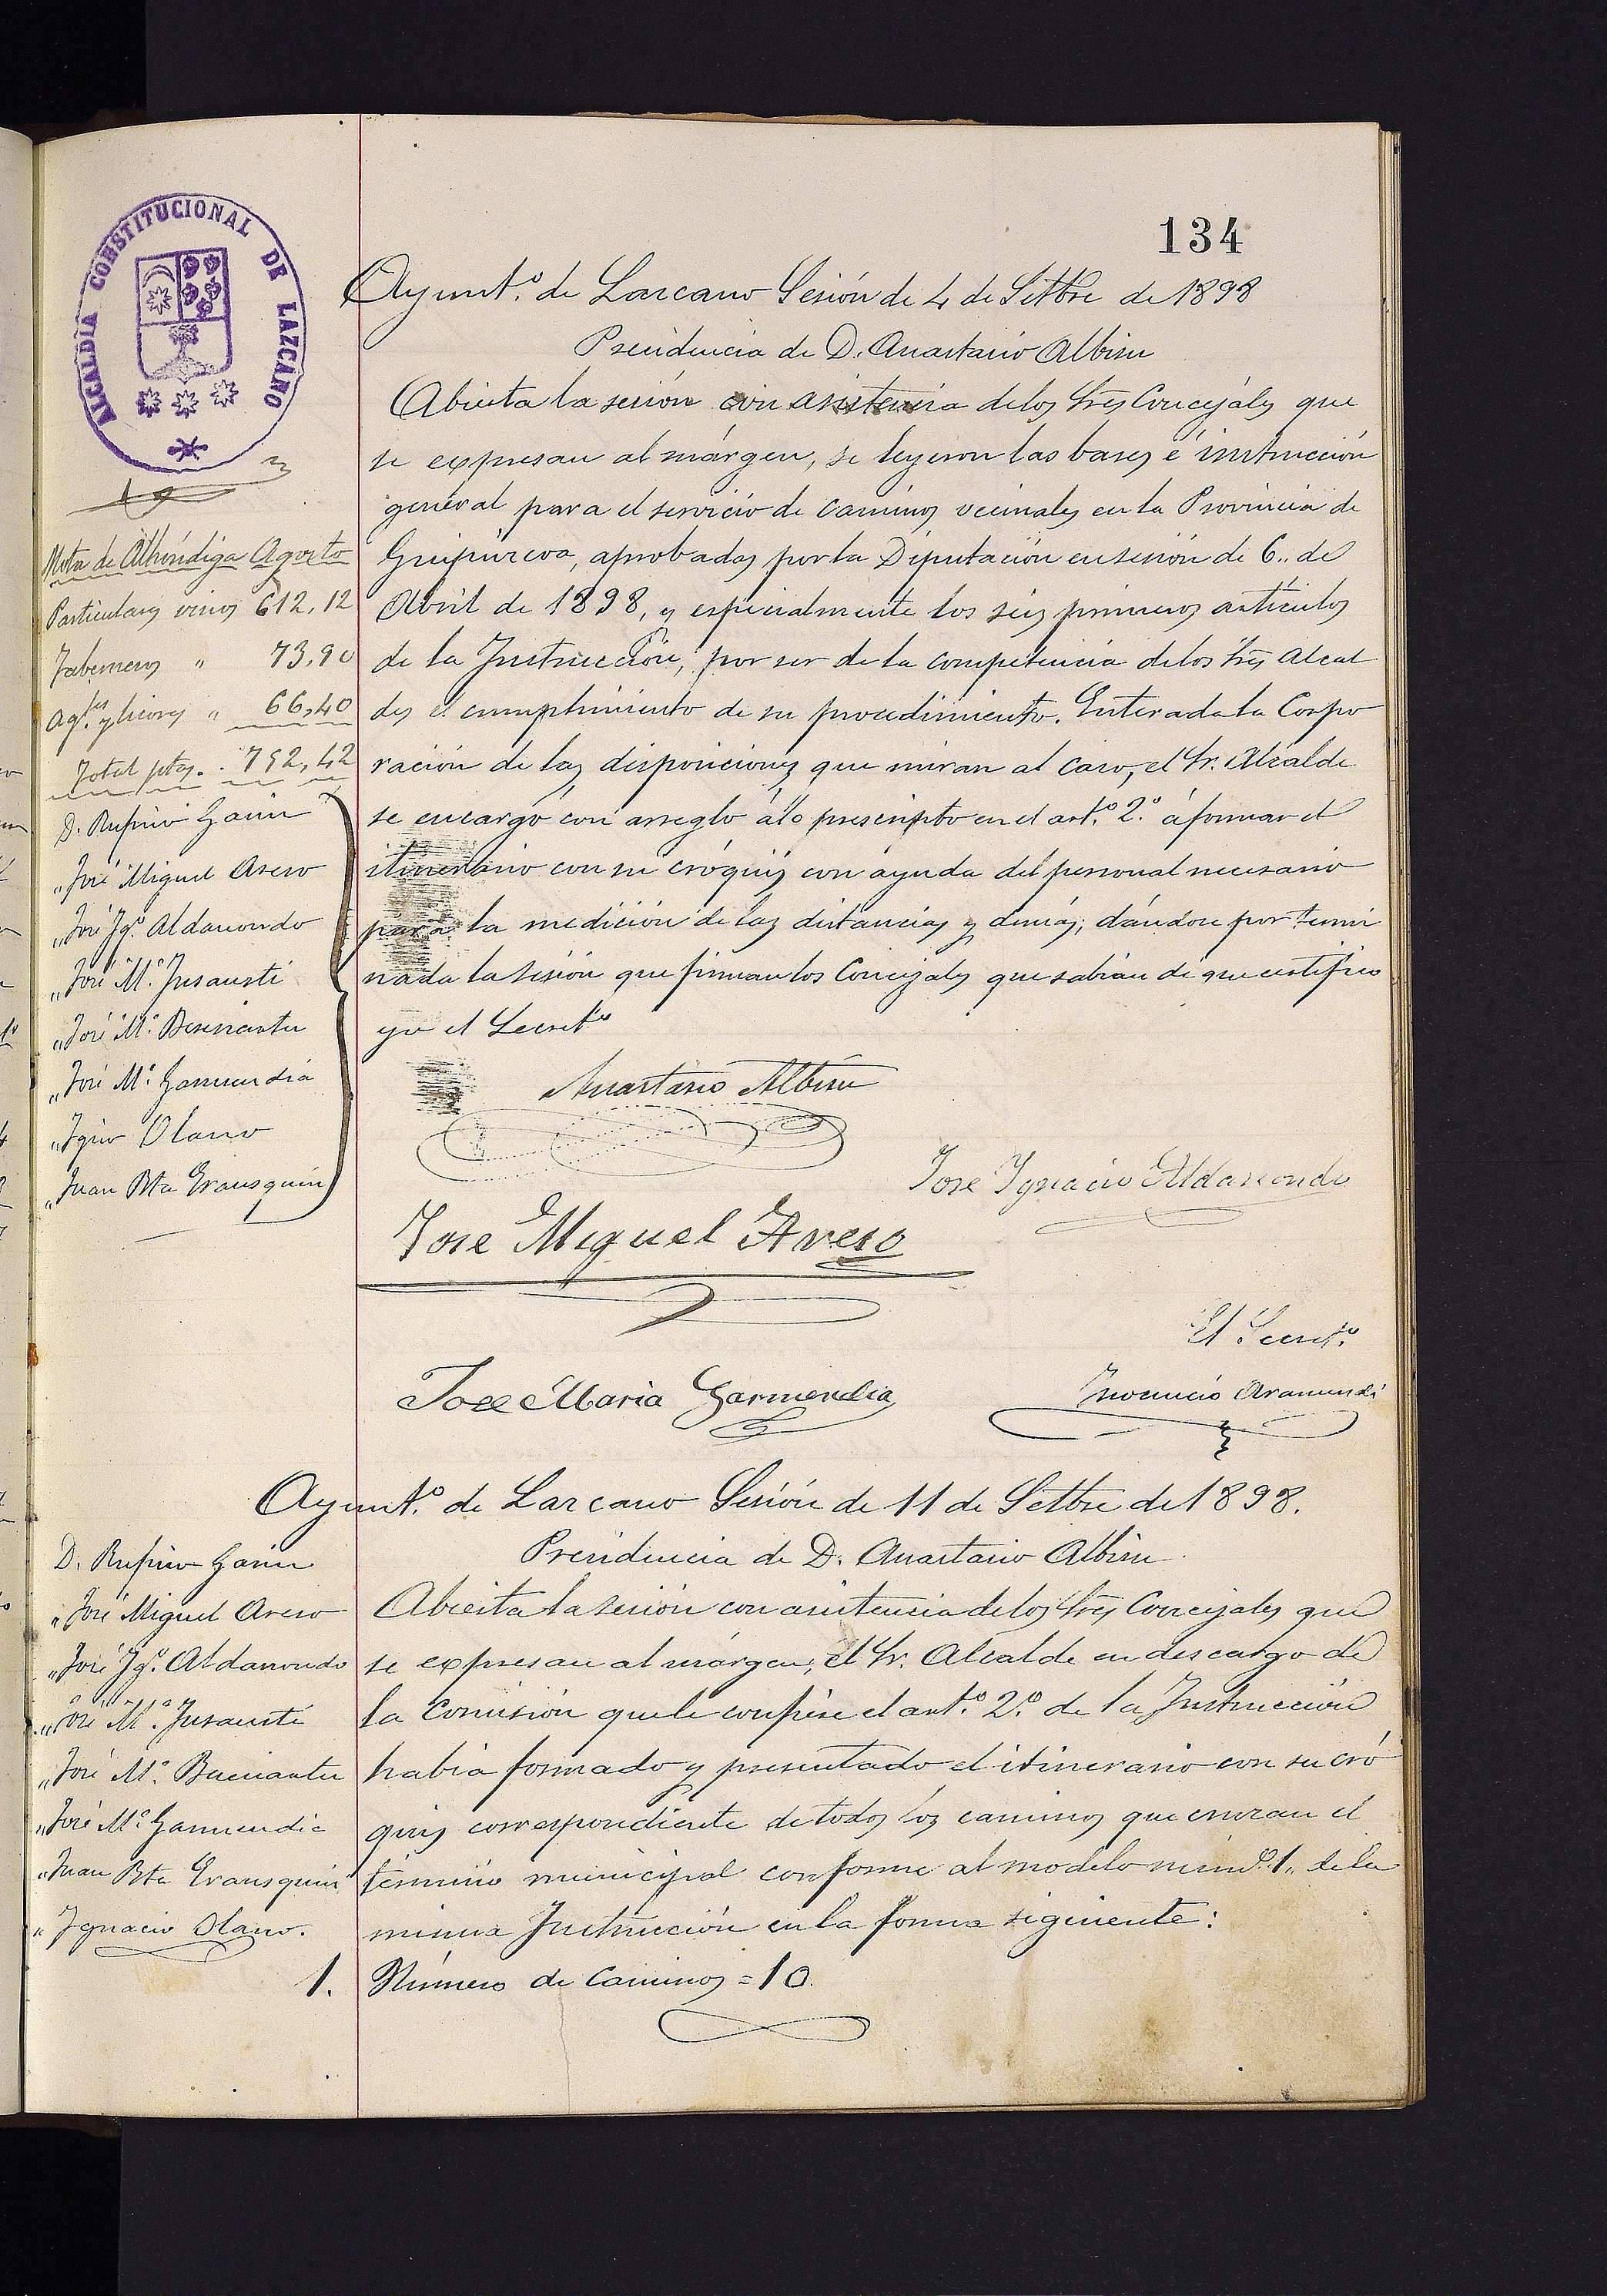 134
ALCALDÍA CONSTITUCIONAL DE LAZCANO
Ayunt.º de Lazcano Sesión de 4 de Setbre de 1898
Presidencia de D. Anastasio Albisu
Abierta la sesión con asistencia de los Sres Concejales que
se expresan al márgen, se leyeron las bases é instrucción
general para el servicio de caminos vecinales en la Provincia de
Guipúzcoa, aprobadas por la Diputación en sesión de 6.. de
Abril de 1898, y especialmente los seis primeros artículos
de la Instrucción, por ser de la competencia de los Sres Alcal
des el cumplimiento de su procedimiento. Enterada la Corpo
ración de las disposiciones que miran al caso, el Sr. Alcalde
se encargó con arreglo á lo prescripto en el art.º 2.º á formar el
itinerario con su cróquis con ayuda del personal necesario
para la medición de las distancias y demás; dándose por termi
nada la sesión que firman los Concejales que sabían de que certifico
yo el Secretº
Nota de Alhóndiga Agosto
Particulares vinos 612,12
Taberneros " 73,90
Agtes. y licores " 66,40
Total ptas. . 752,42
D. Rufino Garin
" José Miguel Areso
" José Igº. Aldasoro
" José M.ª Insausti
" José M.ª
" José M.ª Garmendia
" Igcio Olano
" Juan Bta Erausquin
Anastasio Albisu
Jose Ygnacio Aldasoro
Jose Miguel Areso
El Secretº.
Jose Maria Garmendia
Inocencio Aramendi
Ayunt.º de Lazcano Sesión de 11 de Setbre de 1898.
Presidencia de D. Anastasio Albisu
D. Rufino Garin
" José Miguel Areso
" José Igº. Aldasoro
" José M.ª Insausti
" José M.ª
" José M.ª Garmendia
" Juan Bta Erausquin
" Ygnacio Olano.
Abierta la sesión con asistencia de los Sres Concejales que
se expresan al márgen, el Sr. Alcalde en descargo de
la Comisión que le confiere el art.º 2.º de la Instrucción
había formado y presentado el itinerario con su cró
quis correspondiente de todos los caminos que cruzan el
término municipal conforme al modelo númº. 1.. de la
misma Instrucción en la forma siguiente:
1. Número de Caminos = 10.